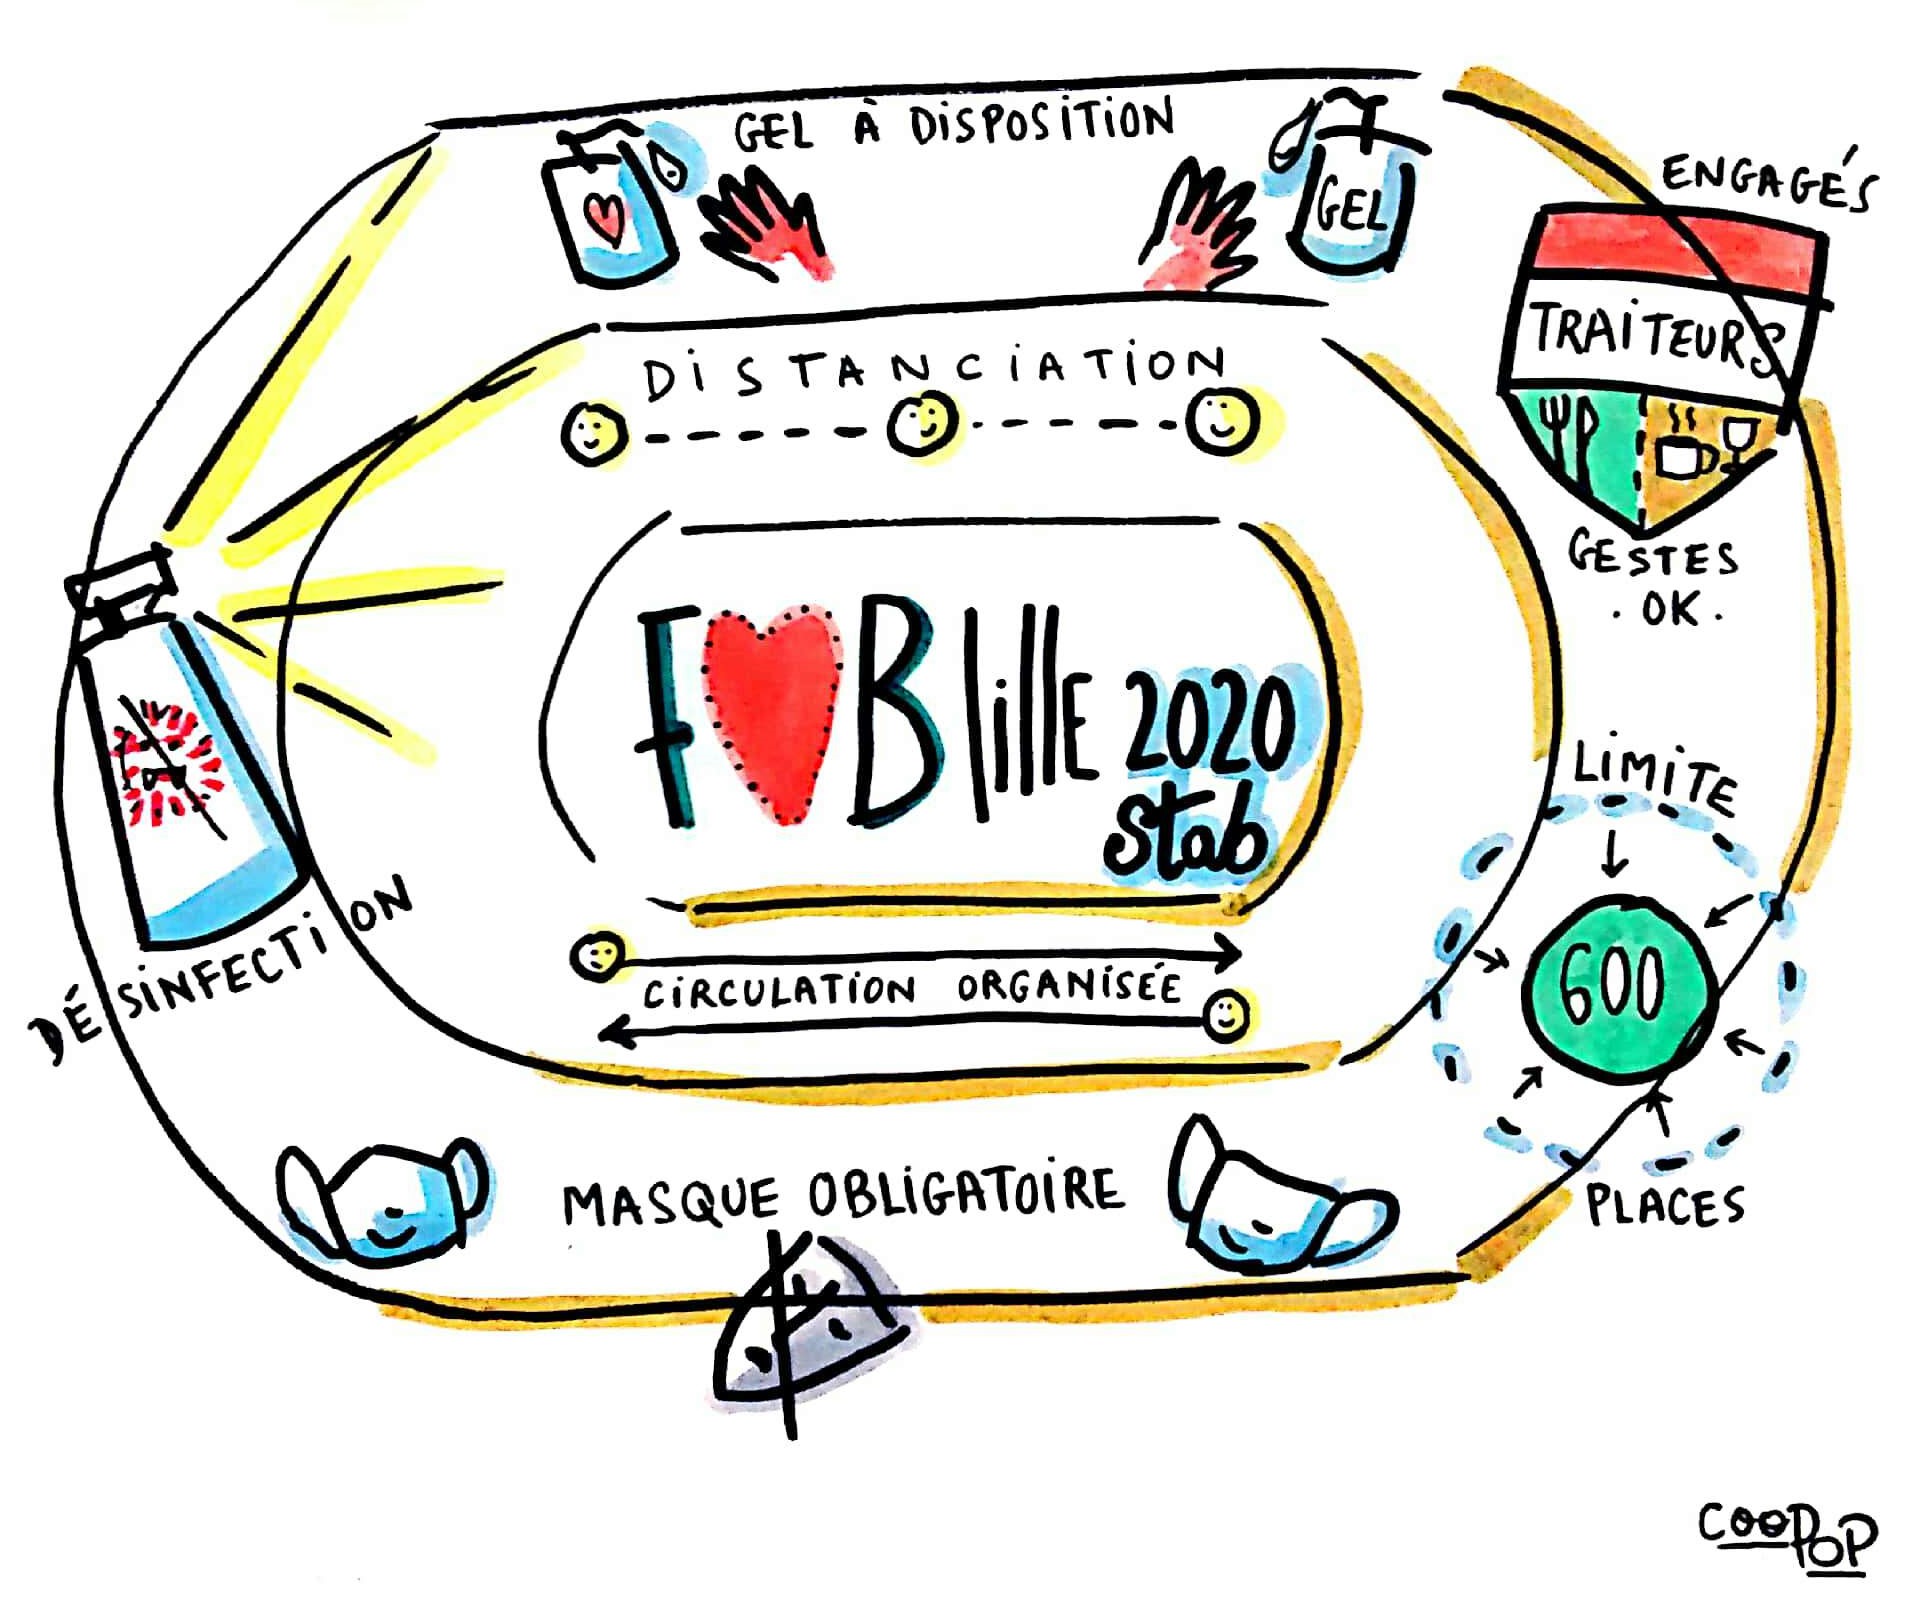 GEL À DISPOSITION
GEL
ENGAGÉS
TRAITEURS
GESTES
. OK .
DISTANCIATION
F B lille 2020
stab
LIMITE
600
PLACES
CIRCULATION ORGANISÉE
DÉSINFECTION
MASQUE OBLIGATOIRE
COOPOP